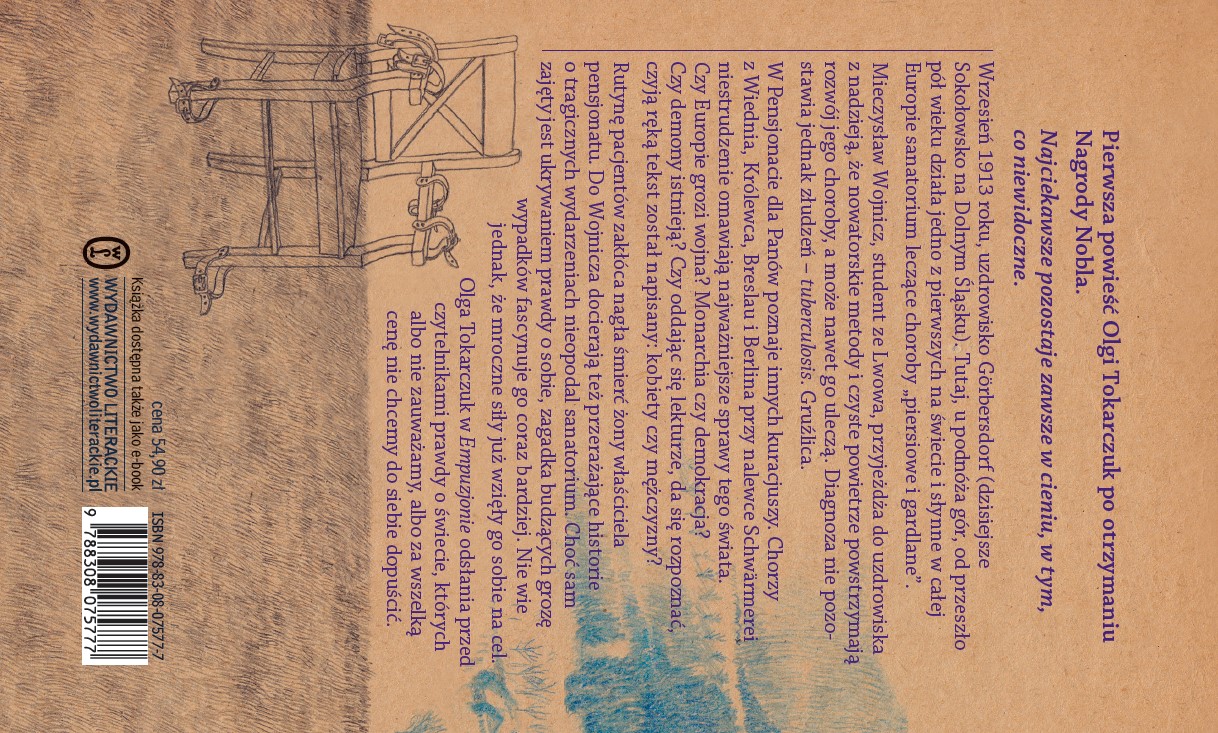 Pierwsza powieść Olgi Tokarczuk po otrzymaniu
Nagrody Nobla.
Najciekawsze pozostaje zawsze w cieniu, w tym,
co niewidoczne.
Wrzesień 1913 roku, uzdrowisko Görbersdorf (dzisiejsze
Sokołowsko na Dolnym Śląsku). Tutaj, u podnóża gór, od przeszło
pół wieku działa jedno z pierwszych na świecie i słynne w całej
Europie sanatorium leczące choroby „piersiowe i gardlane”.
Mieczysław Wojnicz, student ze Lwowa, przyjeżdża do uzdrowiska
z nadzieją, że nowatorskie metody i czyste powietrze powstrzymają
rozwój jego choroby, a może nawet go uleczą. Diagnoza nie pozo-
stawia jednak złudzeń – tuberculosis. Gruźlica.
W Pensjonacie dla Panów poznaje innych kuracjuszy. Chorzy
z Wiednia, Królewca, Breslau i Berlina przy nalewce Schwärmerei
niestrudzenie omawiają najważniejsze sprawy tego świata.
Czy Europie grozi wojna? Monarchia czy demokracja?
Czy demony istnieją? Czy oddając się lekturze, da się rozpoznać,
czyją ręką tekst został napisany: kobiety czy mężczyzny?
Rutynę pacjentów zakłóca nagła śmierć żony właściciela
pensjonatu. Do Wojnicza docierają też przerażające historie
o tragicznych wydarzeniach nieopodal sanatorium. Choć sam
zajęty jest ukrywaniem prawdy o sobie, zagadka budzących grozę
wypadków fascynuje go coraz bardziej. Nie wie
jednak, że mroczne siły już wzięły go sobie na cel.
Olga Tokarczuk w Empuzjonie odsłania przed
czytelnikami prawdy o świecie, których
albo nie zauważamy, albo za wszelką
cenę nie chcemy do siebie dopuścić.
cena 54,90 zł
ISBN 978-83-08-07577-7
Książka dostępna także jako e-book
WYDAWNICTWO LITERACKIE
www.wydawnictwoliterackie.pl
9 788308 075777